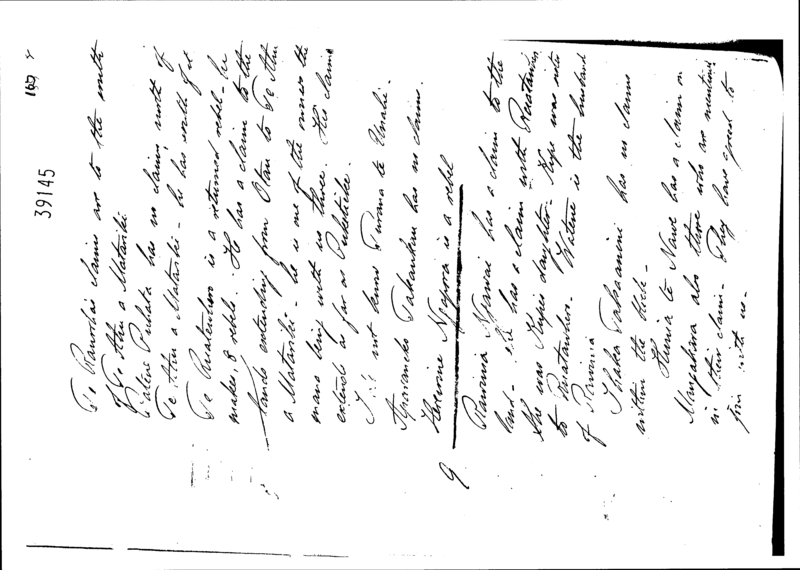 39145
Te Rauroha's claims are to the south
of Te Ahu a Matariki
Patene Puhata has no claims north of
Te Ahu a Matariki - he has south of it
Te Ruatende is a returned rebel - he
makes 8 rebels. He has a claim to the
lands extending from Otau to Te Ahu
a Matariki - he is one of the owners the
mana being with us three. His claims
extends as far as Puketiketike
I do not know Turuna te Urukahi.
Aperaniko Takaanini has no claims.
Herewini Ngapora is a rebel
9
Ramiria Ngawai has a claim to the
land - she has a claim with Ruatanhos
She was Kupis daughter. Kupe was sister
to Ruatanhos. Watene is the husband
of Ramiria
Ihaka Takaanini has no claims
within the block -
Hunia te Nawe has a claim on
Mangakura also those who are mentioned
in their claim - They have agreed to
join with us -